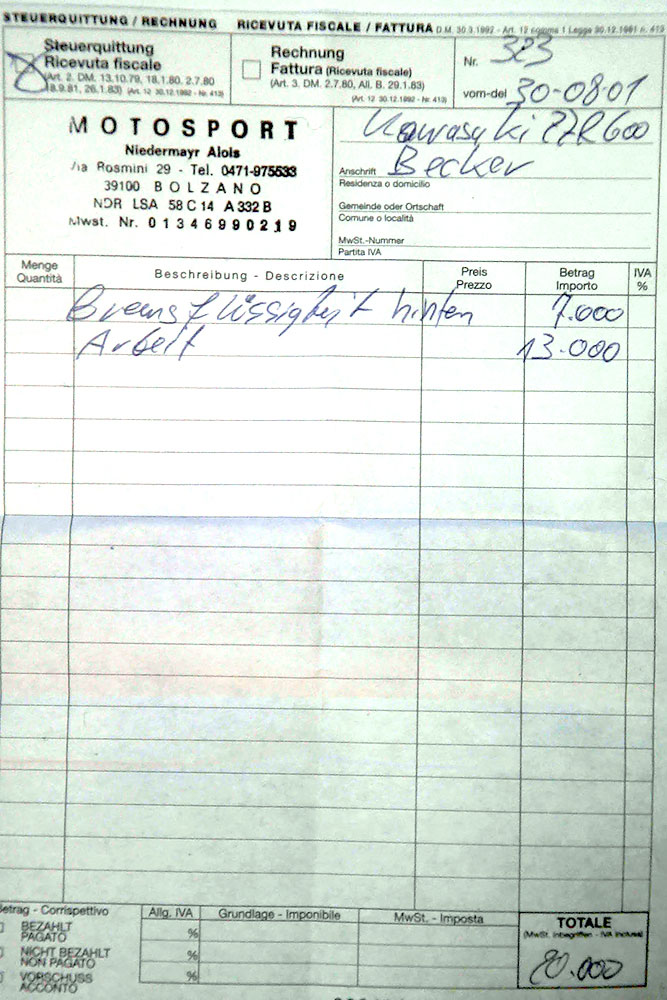 STEUERQUITTUNG / RECHNUNG RICEVUTA FISCALE / FATTURA D.M. 30.3.1992 - Art. 12 comma 1 Legge 30.12.1991 n. 413
Steuerquittung
Ricevuta fiscale
(Art. 2. DM. 13.10.79, 18.1.80. 2.7.80
8.9.81, 26.1.83) (Art. 12 30.12.1992 - Nr. 413)
Rechnung
Fattura (Ricevuta fiscale)
(Art. 3. DM. 2.7.80, All. B. 29.1.83)
(Art. 12 30.12.1992 - Nr. 413)
Nr. 323
vom-del 30-08.01
MOTOSPORT
Niedermayr Alois
Via Rosmini 29 - Tel. 0471-975533
39100 BOLZANO
NDR LSA 58C14 A332B
Mwst. Nr. 01346990219
Kawasyki ZZR600
Becker
Anschrift
Residenza o domicilio
Gemeinde oder Ortschaft
Comune o località
MwSt.-Nummer
Partita IVA
Menge Beschreibung - Descrizione Preis Betrag IVA
Quantità Prezzo Importo %
Bremsflüssigkeit hinten 7.000
Arbeit 13.000
Betrag - Corrispettivo Allg. IVA Grundlage - Imponibile MwSt. - Imposta TOTALE
BEZAHLT % (MwSt. inbegriffen - IVA inclusa)
PAGATO
NICHT BEZAHLT %
NON PAGATO
VORSCHUSS % 20.000
ACCONTO